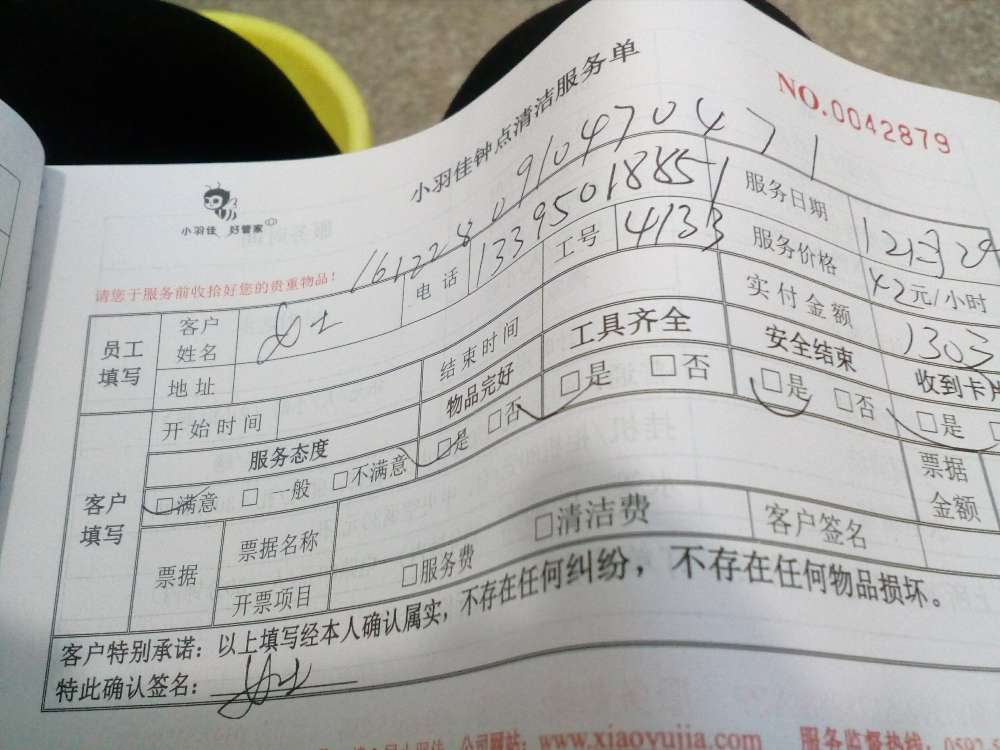 小羽佳钟点清洁服务单
NO.0042879
小羽佳 好管家
16122809104704 71
请您于服务前收拾好您的贵重物品！
员工填写 客户姓名 电话 13395018851 服务日期
地址 工号 4133 服务价格 42元/小时
开始时间 结束时间 实付金额
客户填写 服务态度 物品完好 工具齐全 安全结束 收到卡片
□满意 □一般 □不满意 □是 □否 □是 □否 □是 □否 □是
票据 票据名称 票据金额
开票项目 □服务费 □清洁费 客户签名
客户特别承诺：以上填写经本人确认属实，不存在任何纠纷，不存在任何物品损坏。
特此确认签名：
公司网站：www.xiaoyujia.com 服务监督热线